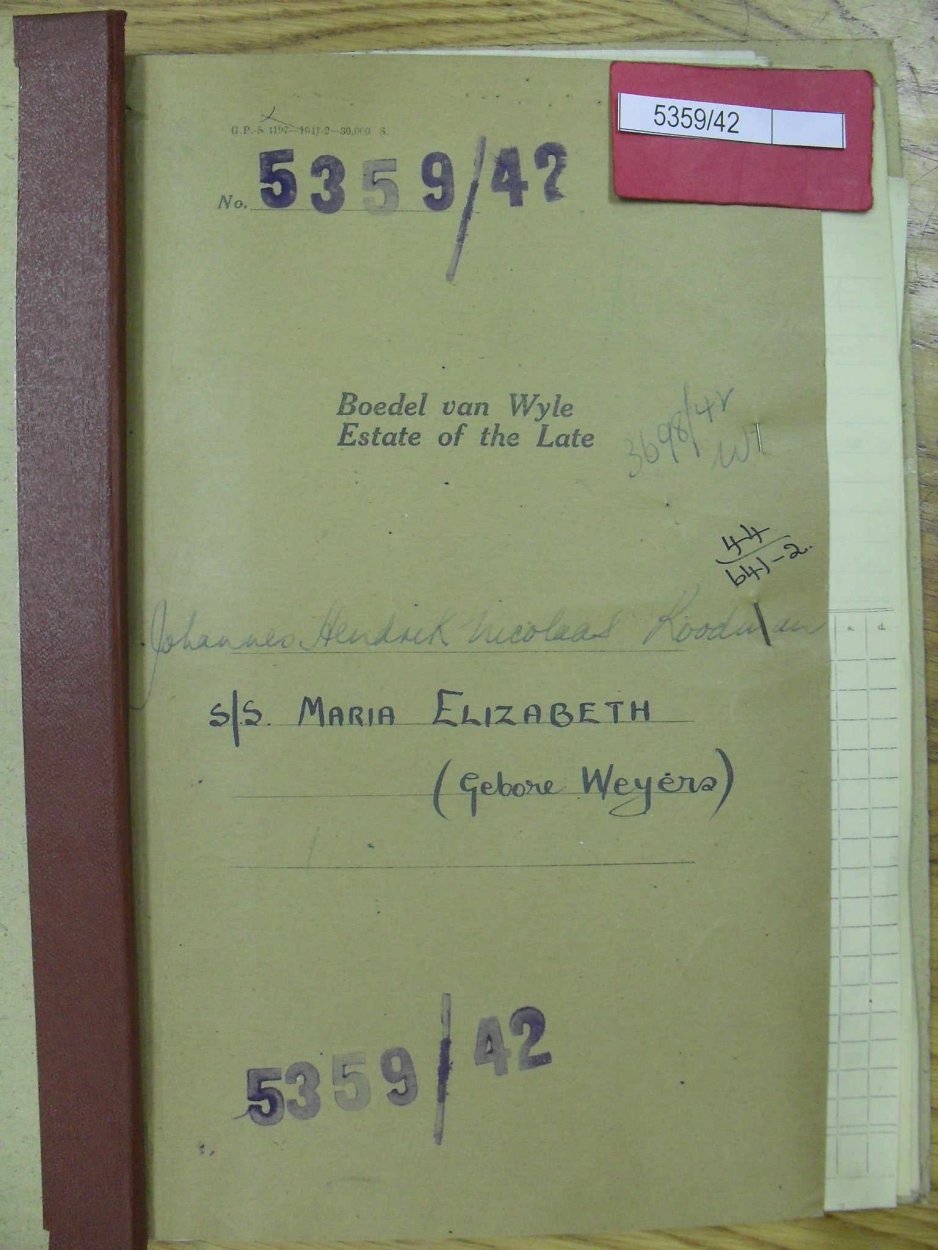 5359/42
G.P.-S. 4197—1941-2—30,000 S.
No. 5359/42
Boedel van Wyle
Estate of the Late
3698/42
44
641-2.
Johannes Hendrik Nicolaas
S/S. MARIA ELIZABETH
(Gebore Weyers)
5359/42